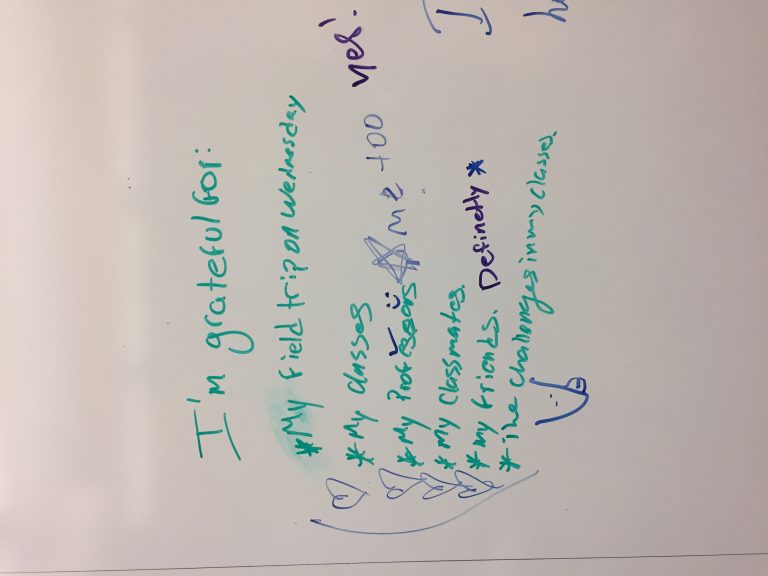 I'm grateful for:
*My field trip on Wednesday
*My classes
*My Professors :) ☆ Me too yes!
*My classmates.
*my friends. Definetly *
*the challenges in my classes.
I